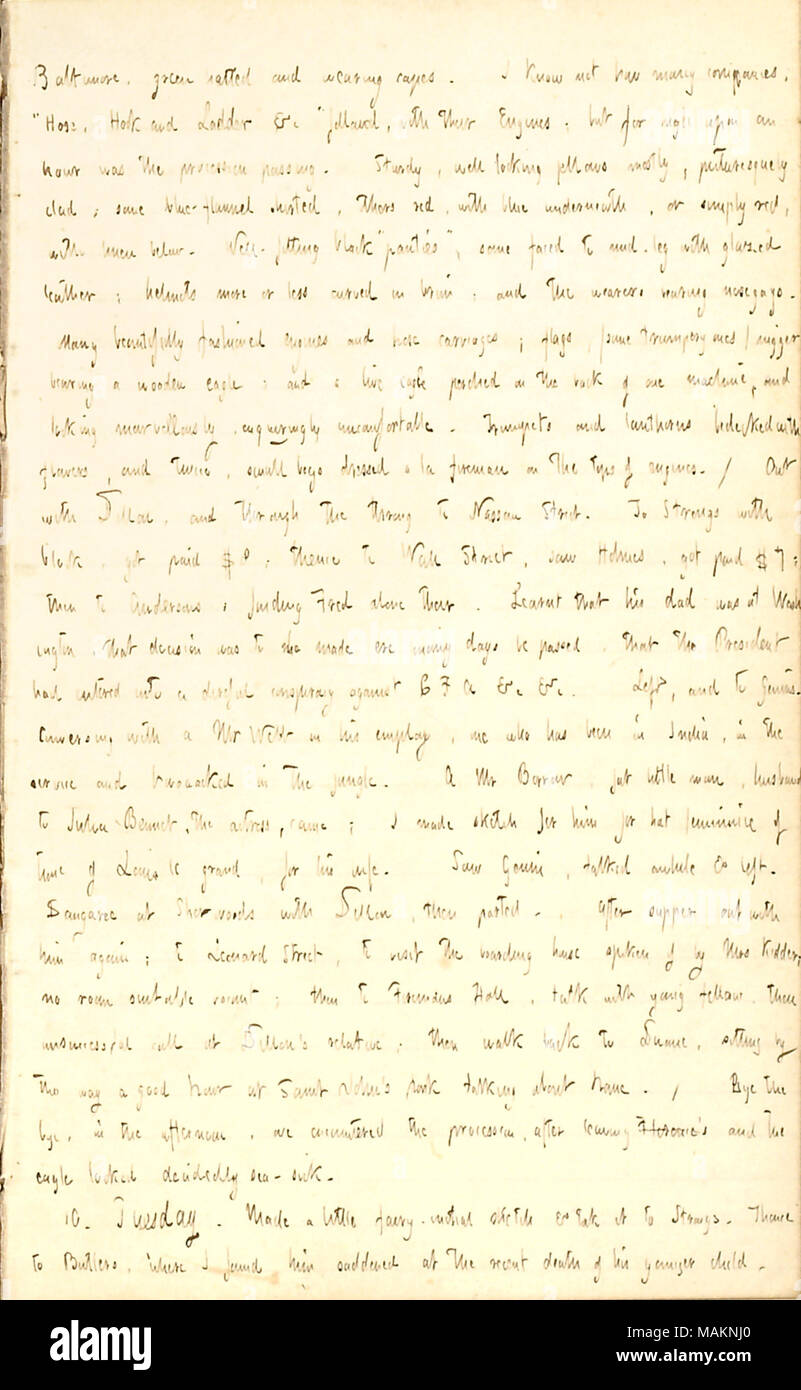 Baltimore, green hatted and wearing capes. I know not how many companies,
"Hose, Hook and Ladder &c" followed, with their Engines; but for nigh upon an
hour was the procession passing. Sturdy, well looking fellows mostly, picturesquely
clad; some blue-flannel shirted, others red, with blue underneath, or simply red,
with linen below. Well-fitting black "panties", some faced to mid-leg with glazed
leather; helmets more or less curved in brim; and the wearers wearing nosegays.
Many beautifully fashioned engines and hose carriages; flags, (some trumpery ones) nigger
bearing a wooden eagle; and a live eagle perched on the back of one machine, and
looking marvellously, enquiringly uncomfortable. Trumpets and lanthorns bedecked with
flowers, and twice, small boys dressed a la fireman on the tops of engines. / Out
with Dillon, and through the throng to Nassau Street. To Strongs with
block, got paid $ ; thence to Wall Street, saw Holmes, got paid $7;
then to Andersons, finding Fred alone there. Learnt that his dad was at Wash
ington, that decision was to be made ere many days be passed, that the President
had entered into a direful conspiracy against C F A &c &c. Left, and to Genins.
Conversing with a Mr Watt in his employ, one who has been in India, in the
service and bivouacked in the jungle. A Mr Barrow, fat little man, husband
to Julia Bennet, the actress, came; I made sketch for him for hat feminine of
time of Louis le grand, for his wife. Saw Genin, talked awhile & left.
Sangaree at Sherwoods with Dillon, then parted. After supper out with
him again; to Leonard Street, to visit the boarding house spoken of by Mrs Kidder,
no room suitable vacant; then to Firemans Hall, talk with young fellow, then
unsuccessful call at Dillon's relative; then walk back to Duane, sitting by
the way a good hour at Saint John's park talking about home. / Bye the
bye, in the afternoon, we encountered the procession, after leaving and the
eagle looked decidedly sea-sick.
10. Tuesday. Made a little fairy-initial sketch & took it to Strongs. Thence
to Butlers, where I found him saddened at the recent death of his younger child.
alamy
Image ID: MAKNJ0
www.alamy.com